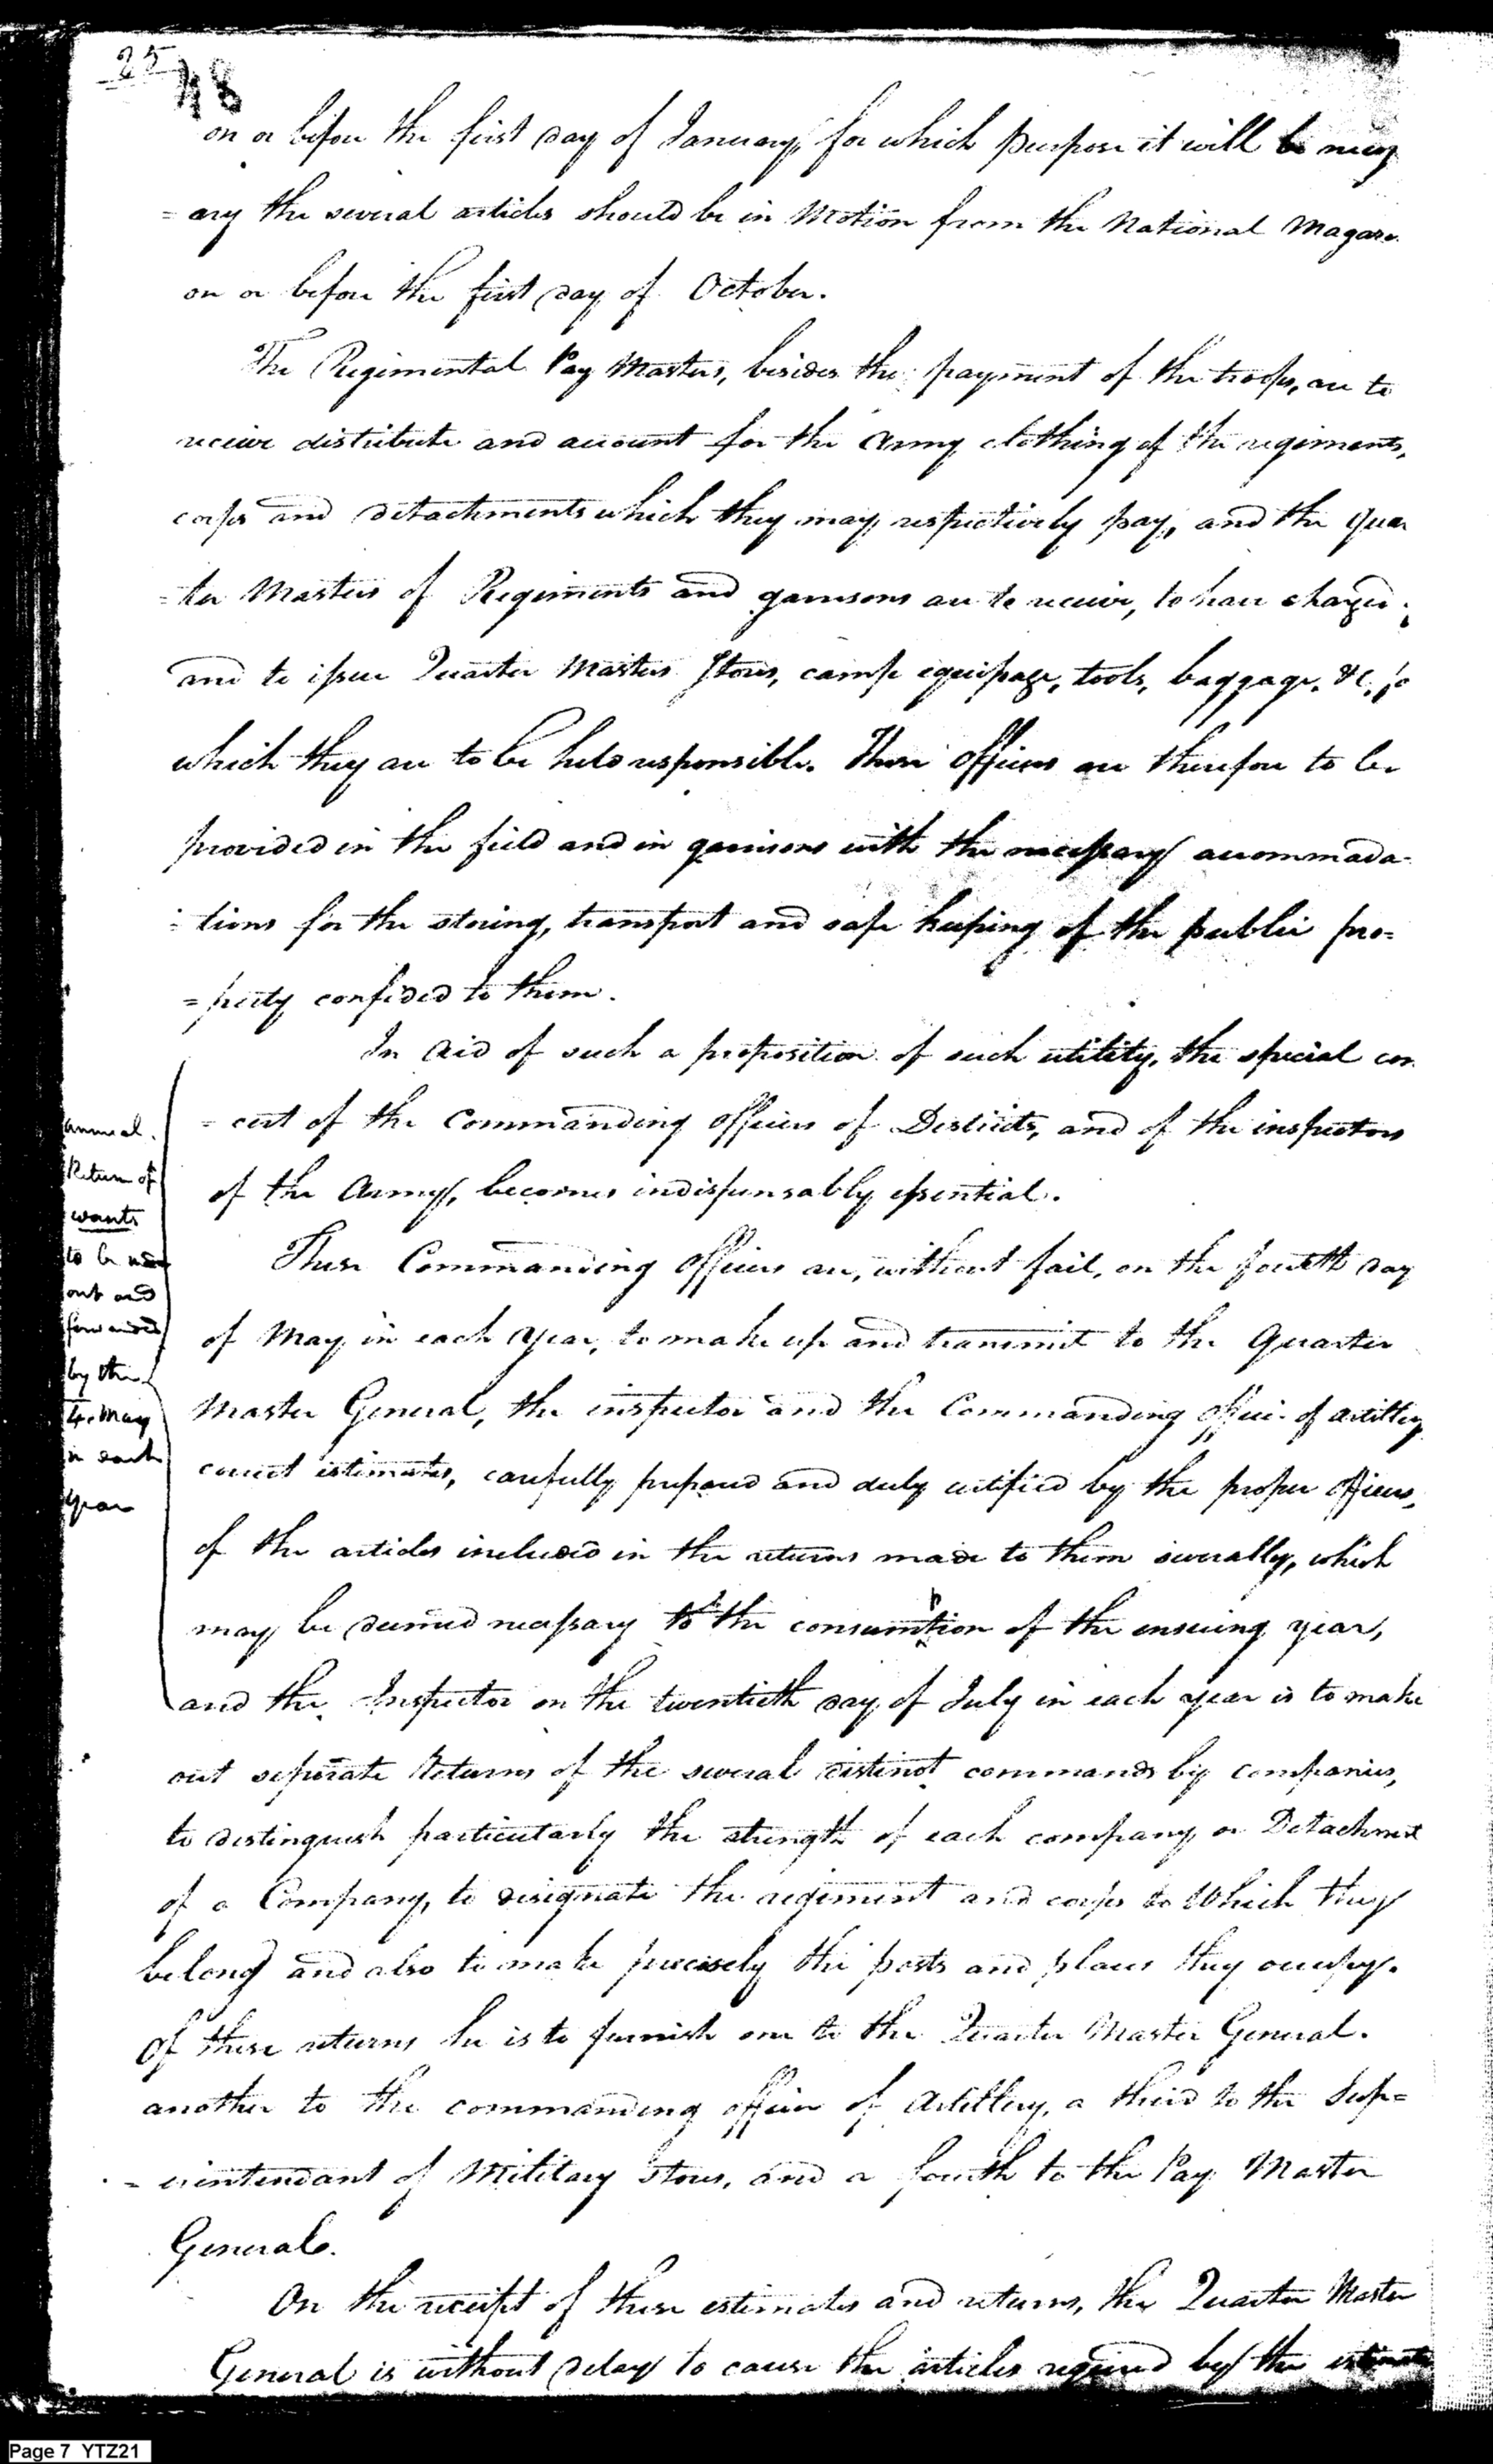 25
48
on or before the first day of January, for which purpose it will be necess
= ary the several articles should be in Motion from the National Magaze.
on or before the first day of October.
The Regimental Pay Masters, besides the payment of the troops, are to
receive distribute and account for the Army clothing of the regiments,
corps and detachments which they may respectively pay, and the Quar
= ter Masters of Regiments and garrisons are to receive, to have charged,
and to issue Quarter Masters Stores, camp equipage, tools, baggage, &c, fo
which they are to be held responsible. These Officers are therefore to be
provided in the field and in garrisons with the necessary accommada-
= tions for the storing, transport and safe keeping of the public pro=
= perty confided to them.
In aid of such a proposition of such utility, the special con
= cert of the Commanding Officers of Districts, and of the inspectors
of the Army, becomes indispensably essential.
These Commanding Officers are, without fail, on the fourth day
of May in each year, to make up and transmit to the Quarter
Master General, the inspector and the Commanding officer of artillery
correct estimates, carefully prepared and duly certified by the proper officers,
of the articles included in the returns made to them severally, which
may be deemed necessary to the consumption of the ensuing year,
and the Inspector on the twentieth day of July in each year is to make
out separate Returns of the several distinct commands by companies,
to distinguish particularly the strength of each company or Detachment
of a Company, to designate the regiment and corps to Which they
belong and also to make precisely the posts and places they occupy.
Of these returns he is to furnish one to the Quarter Master General.
another to the commanding officer of Artillery, a third to the Sup=
= erintendant of Military Stores, and a fourth to the Pay Master
General.
On the receipt of these estimates and returns, the Quarter Master
General is without delay to cause the articles required by the estimate
annual
Return of
wants
to be made
out and
forwarded
by the
4. May
in each
year
Page 7 YTZ21